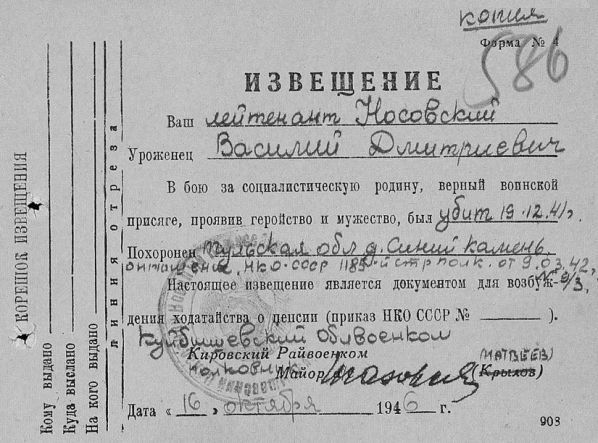 копия
Форма № 4
586
ИЗВЕЩЕНИЕ
Ваш лейтенант Носовский
Уроженец Василий Дмитриевич
В бою за социалистическую родину, верный воинской
присяге, проявив геройство и мужество, был убит 19.12.41г.
Похоронен Тульская обл д. Синий камень
НКО-СССР 1185 й стр полк. от 9.03.42,
№ 9/3.
Настоящее извещение является документом для возбуж-
дения ходатайства о пенсии (приказ НКО СССР № ).
Куйбышевский облвоенком
Кировский Райвоенком
полковник (МАТВЕЕВ)
Майор Крылов)
Дата « 16 » октября 1946 г.
903
КОРЕШОК ИЗВЕЩЕНИЯ
Кому выдано
Куда выслано
На кого выдано
линия отреза